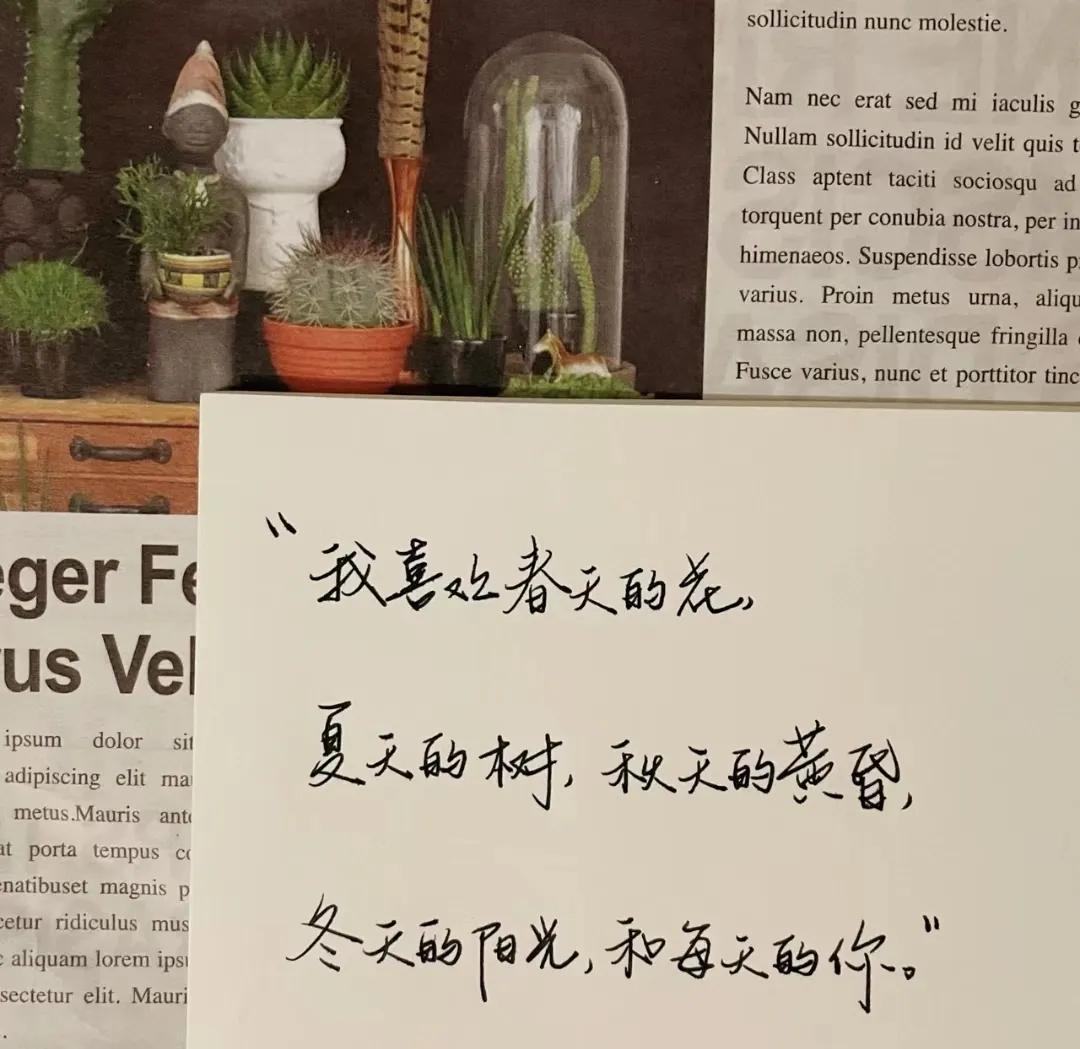 sollicitudin nunc molestie.
Nam nec erat sed mi iaculis
Nullam sollicitudin id velit quis
Class aptent taciti sociosqu ad
torquent per conubia nostra, per
himenaeos. Suspendisse lobortis
varius. Proin metus urna,
massa non, pellentesque fringilla
Fusce varius, nunc et porttitor
eger Fe
us Vel
ipsum dolor sit
adipiscing elit
metus.Mauris
at porta tempus
enatibuset magnis
cetur ridiculus mus
c aliquam lorem
sectetur elit. Mauri
"我喜欢春天的花,
夏天的树, 秋天的黄昏,
冬天的阳光, 和每天的你。"